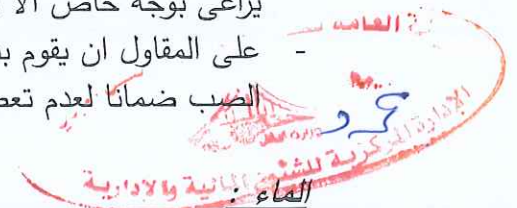 يراعى بوجه خاص الا
العامة
- على المقاول ان يقوم ب
الصب ضمانا لعدم تعط
الإدارة المركزية للشئون المالية والادارية
الماء :